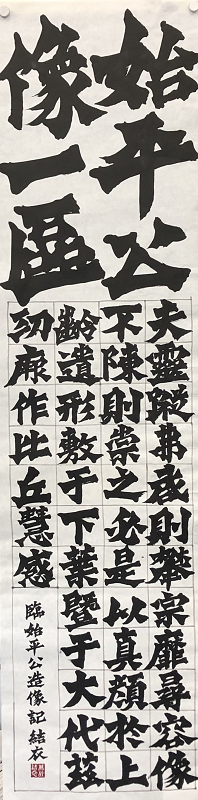 始平公
像一區
夫靈蹤弗則攀宗靡尋容像
不陳則崇之必是以真顏於上
齡遺形敷于下葉暨于大代茲
功厥作比丘慧感
臨始平公造像記 結衣